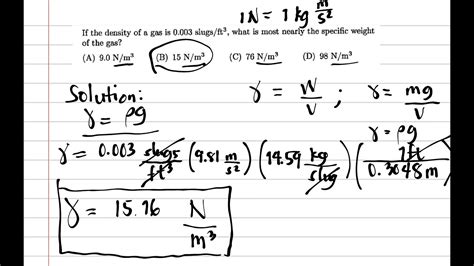 1N = 1 kg m/s²
If the density of a gas is 0.003 slugs/ft³, what is most nearly the specific weight
of the gas?
(A) 9.0 N/m³ (B) 15 N/m³ (C) 76 N/m³ (D) 98 N/m³
Solution:
γ = ρg
γ = W/V ; γ = mg/V
γ = ρg
γ = 0.003 slugs/ft³ (9.81 m/s²) (14.59 kg/slug) (1ft/0.3048m
γ = 15.16 N/m³